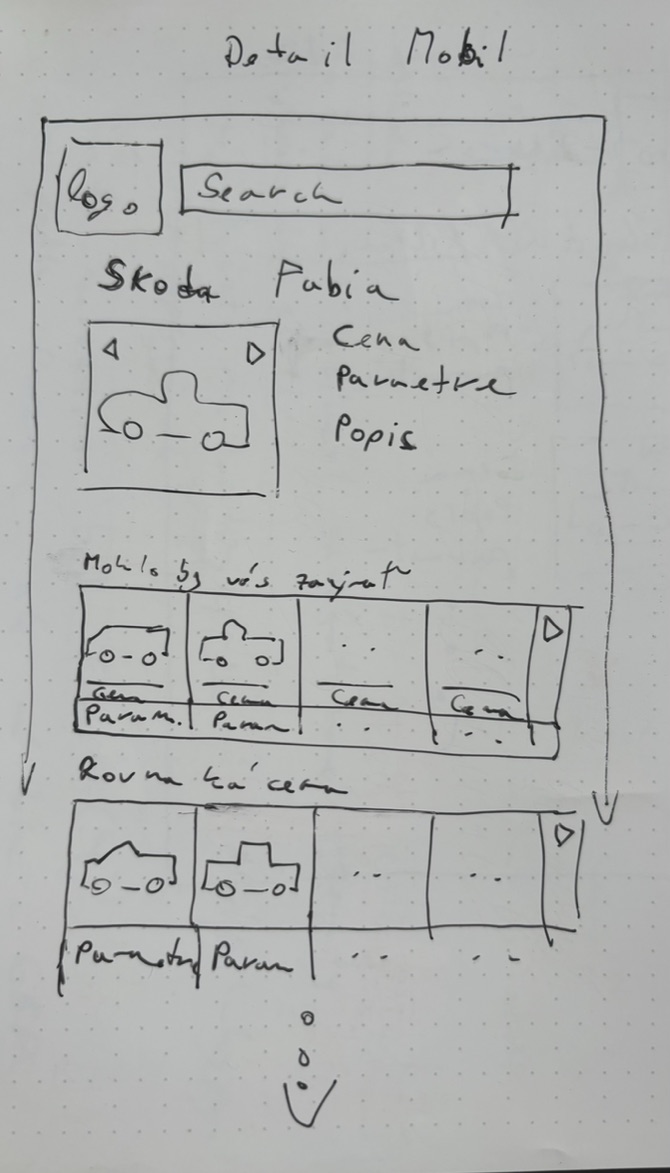 Detail Mobil
logo
Search
Skoda Fabia
Cena
Parametre
Popis
Mohlo by vás zaujímať
Cena Cena Cena Cena
Param. Param
Rovnaká cena
Parametre Param